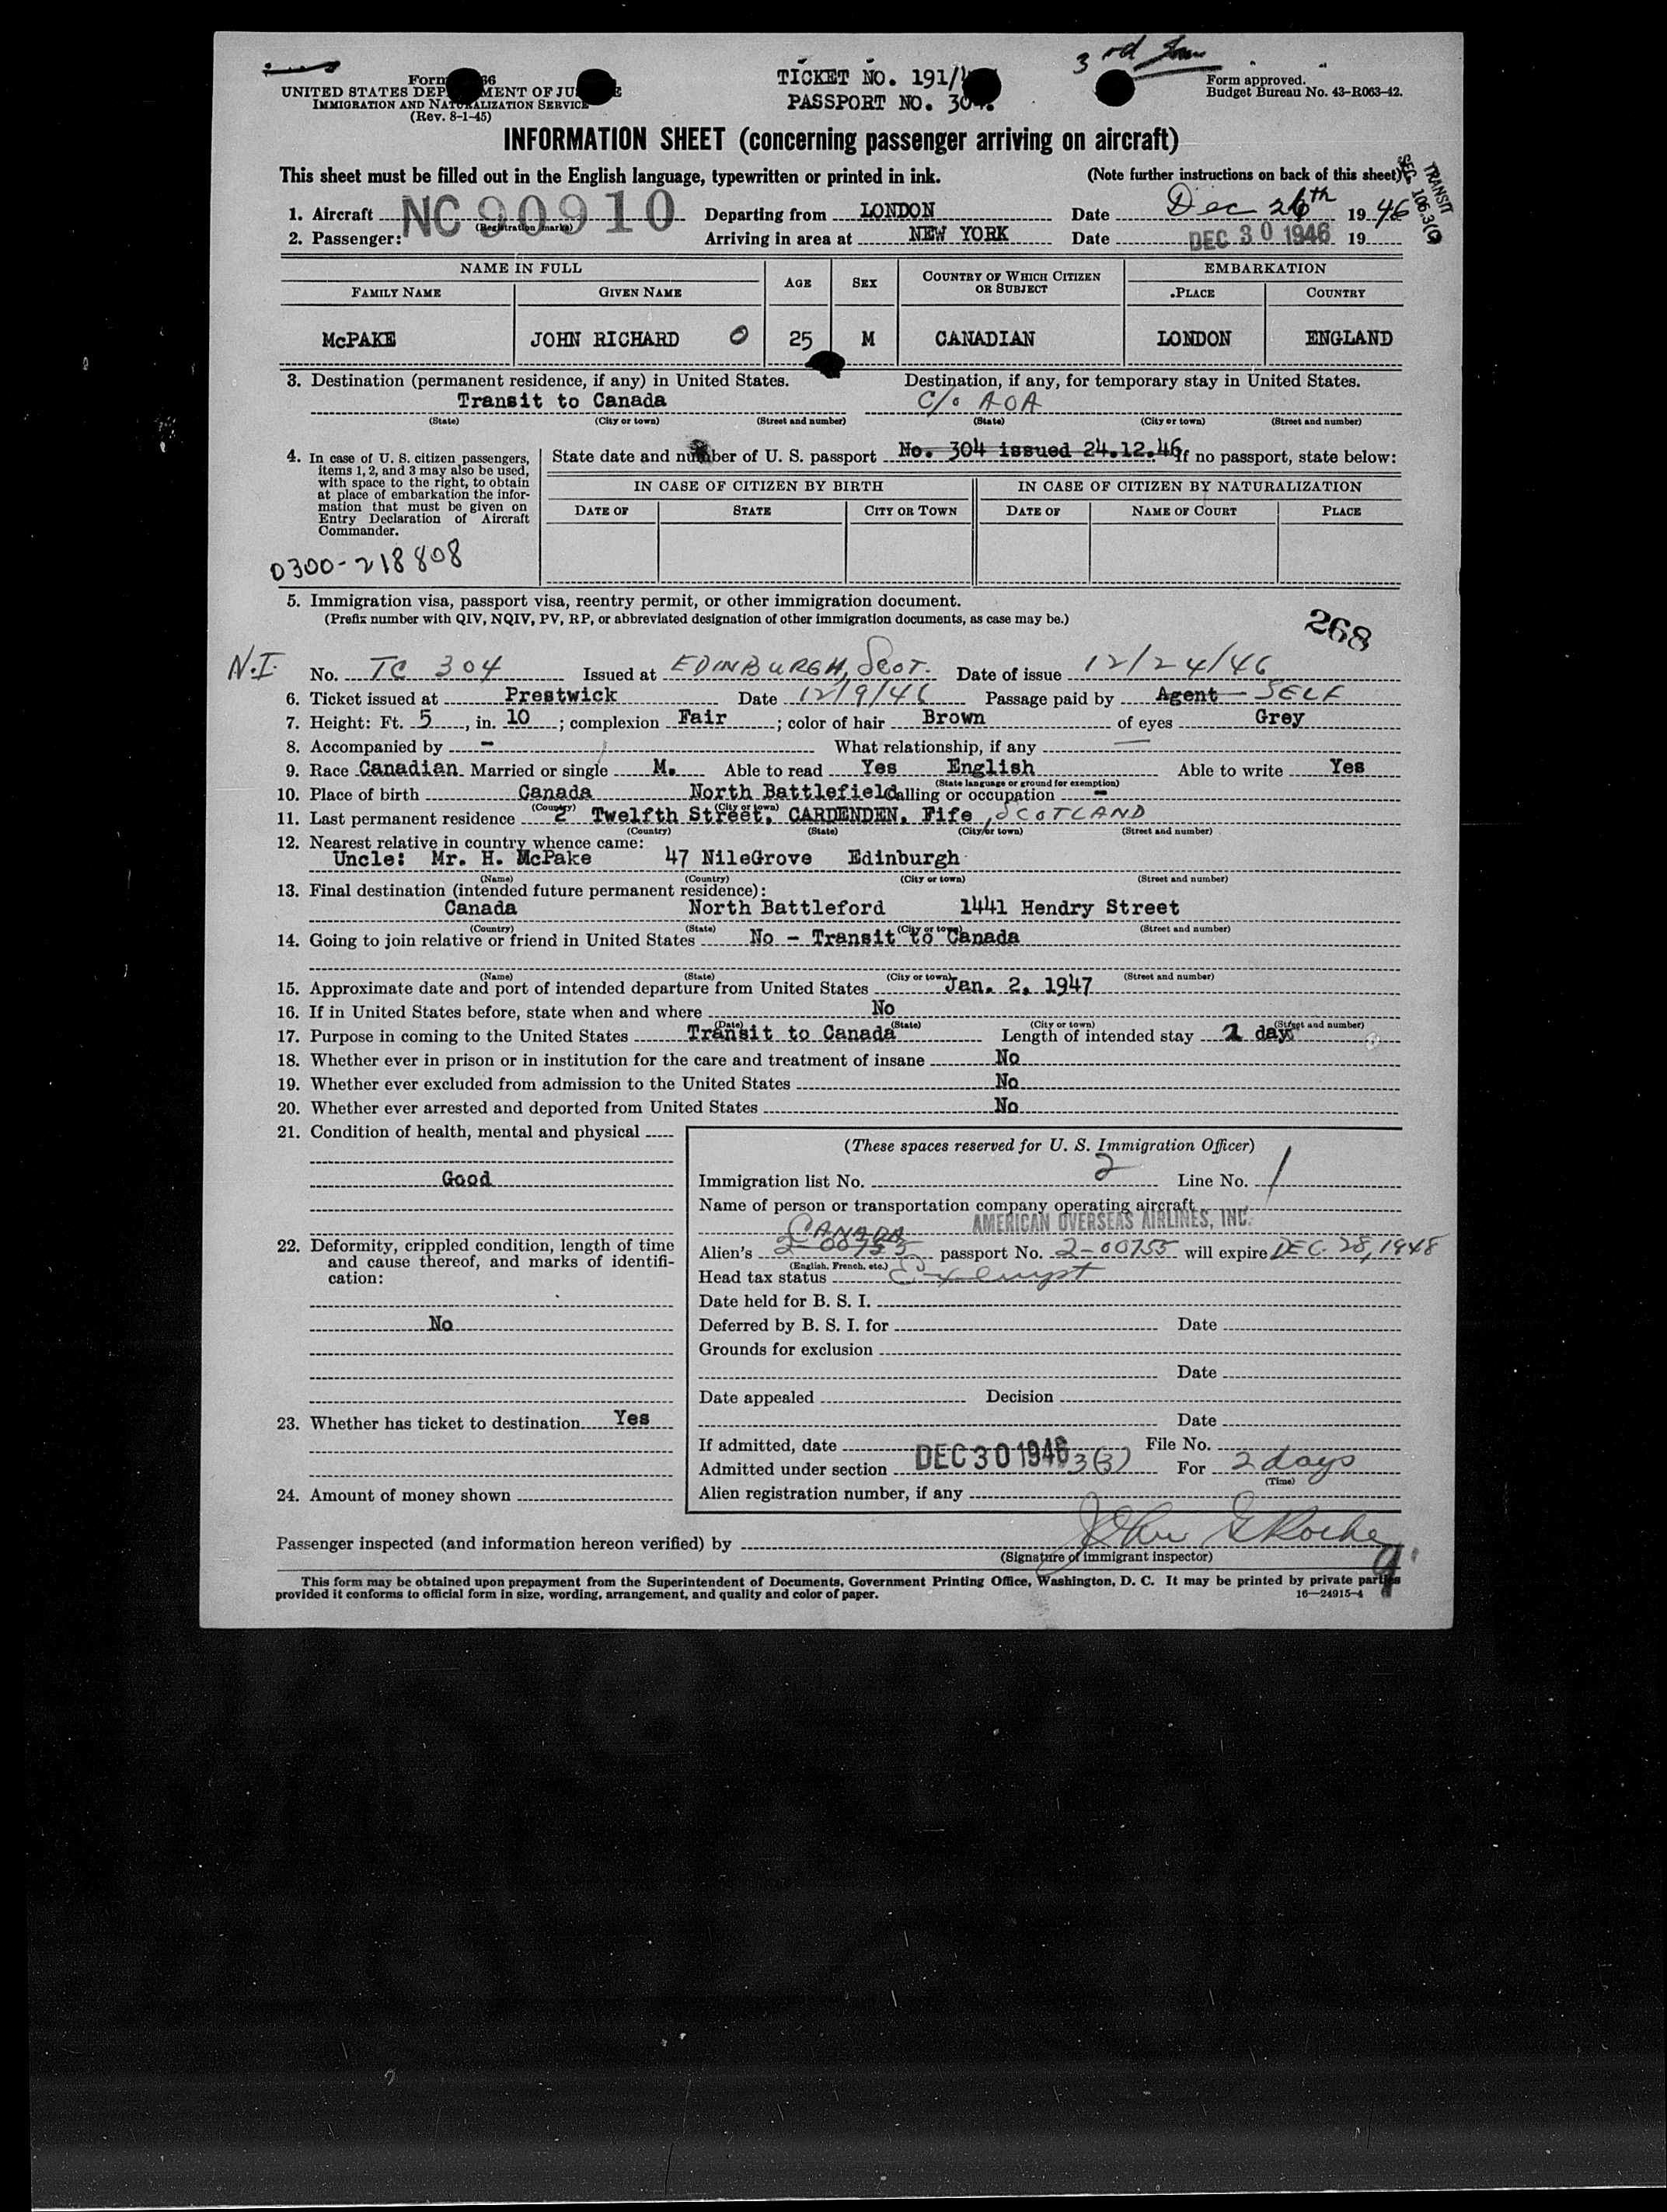 3rd
TICKET NO. 191/
PASSPORT NO. 304.
Form 66
UNITED STATES DEPARTMENT OF JUSTICE
IMMIGRATION AND NATURALIZATION SERVICE
(Rev. 8-1-45)
Form approved.
Budget Bureau No. 43-R063-42.
INFORMATION SHEET (concerning passenger arriving on aircraft)
This sheet must be filled out in the English language, typewritten or printed in ink. (Note further instructions on back of this sheet)
TRANSIT
SEC. 106.3(C)
1. Aircraft NC 90910 Departing from LONDON Date Dec 26th 1946
(Registration marks)
2. Passenger: Arriving in area at NEW YORK Date DEC 30 1946 19
NAME IN FULL AGE SEX COUNTRY OF WHICH CITIZEN OR SUBJECT EMBARKATION
FAMILY NAME GIVEN NAME PLACE COUNTRY
McPAKE JOHN RICHARD 0 25 M CANADIAN LONDON ENGLAND
3. Destination (permanent residence, if any) in United States. Destination, if any, for temporary stay in United States.
Transit to Canada C/o AOA
(State) (City or town) (Street and number) (State) (City or town) (Street and number)
4. In case of U. S. citizen passengers, items 1, 2, and 3 may also be used, with space to the right, to obtain at place of embarkation the information that must be given on Entry Declaration of Aircraft Commander.
State date and number of U. S. passport No. 304 issued 24.12.46 If no passport, state below:
IN CASE OF CITIZEN BY BIRTH IN CASE OF CITIZEN BY NATURALIZATION
DATE OF STATE CITY OR TOWN DATE OF NAME OF COURT PLACE
0300-218808
5. Immigration visa, passport visa, reentry permit, or other immigration document.
(Prefix number with QIV, NQIV, PV, RP, or abbreviated designation of other immigration documents, as case may be.)
268
N.I. No. TC 304 Issued at EDINBURGH, SCOT. Date of issue 12/24/46
6. Ticket issued at Prestwick Date 12/9/46 Passage paid by Agent - SELF
7. Height: Ft. 5, in. 10; complexion Fair; color of hair Brown of eyes Grey
8. Accompanied by - What relationship, if any —
9. Race Canadian Married or single M. Able to read Yes English Able to write Yes
(State language or ground for exemption)
10. Place of birth Canada North Battlefield Calling or occupation -
(Country) (City or town)
11. Last permanent residence 2 Twelfth Street, CARDENDEN, Fife, SCOTLAND
(Country) (State) (City or town) (Street and number)
12. Nearest relative in country whence came:
Uncle: Mr. H. McPake 47 NileGrove Edinburgh
(Name) (Country) (City or town) (Street and number)
13. Final destination (intended future permanent residence):
Canada North Battleford 1441 Hendry Street
(Country) (State) (City or town) (Street and number)
14. Going to join relative or friend in United States No - Transit to Canada
(Name) (State) (City or town) (Street and number)
15. Approximate date and port of intended departure from United States Jan. 2, 1947
16. If in United States before, state when and where No
(Date) (State) (City or town) (Street and number)
17. Purpose in coming to the United States Transit to Canada Length of intended stay 1 day
18. Whether ever in prison or in institution for the care and treatment of insane No
19. Whether ever excluded from admission to the United States No
20. Whether ever arrested and deported from United States No
21. Condition of health, mental and physical
Good
22. Deformity, crippled condition, length of time and cause thereof, and marks of identification:
No
23. Whether has ticket to destination Yes
24. Amount of money shown
(These spaces reserved for U. S. Immigration Officer)
Immigration list No. 2 Line No. 1
Name of person or transportation company operating aircraft
AMERICAN OVERSEAS AIRLINES, INC.
CANADA
Alien's 2-00755 passport No. 2-00755 will expire DEC. 28, 1948
(English, French, etc.)
Head tax status Exempt
Date held for B. S. I.
Deferred by B. S. I. for Date
Grounds for exclusion
Date
Date appealed Decision
Date
If admitted, date DEC 30 1946 File No.
Admitted under section 3(3) For 2 days
(Time)
Alien registration number, if any
Passenger inspected (and information hereon verified) by John G Roche
(Signature of immigrant inspector)
9
This form may be obtained upon prepayment from the Superintendent of Documents, Government Printing Office, Washington, D. C. It may be printed by private parties
provided it conforms to official form in size, wording, arrangement, and quality and color of paper. 16—24915-4